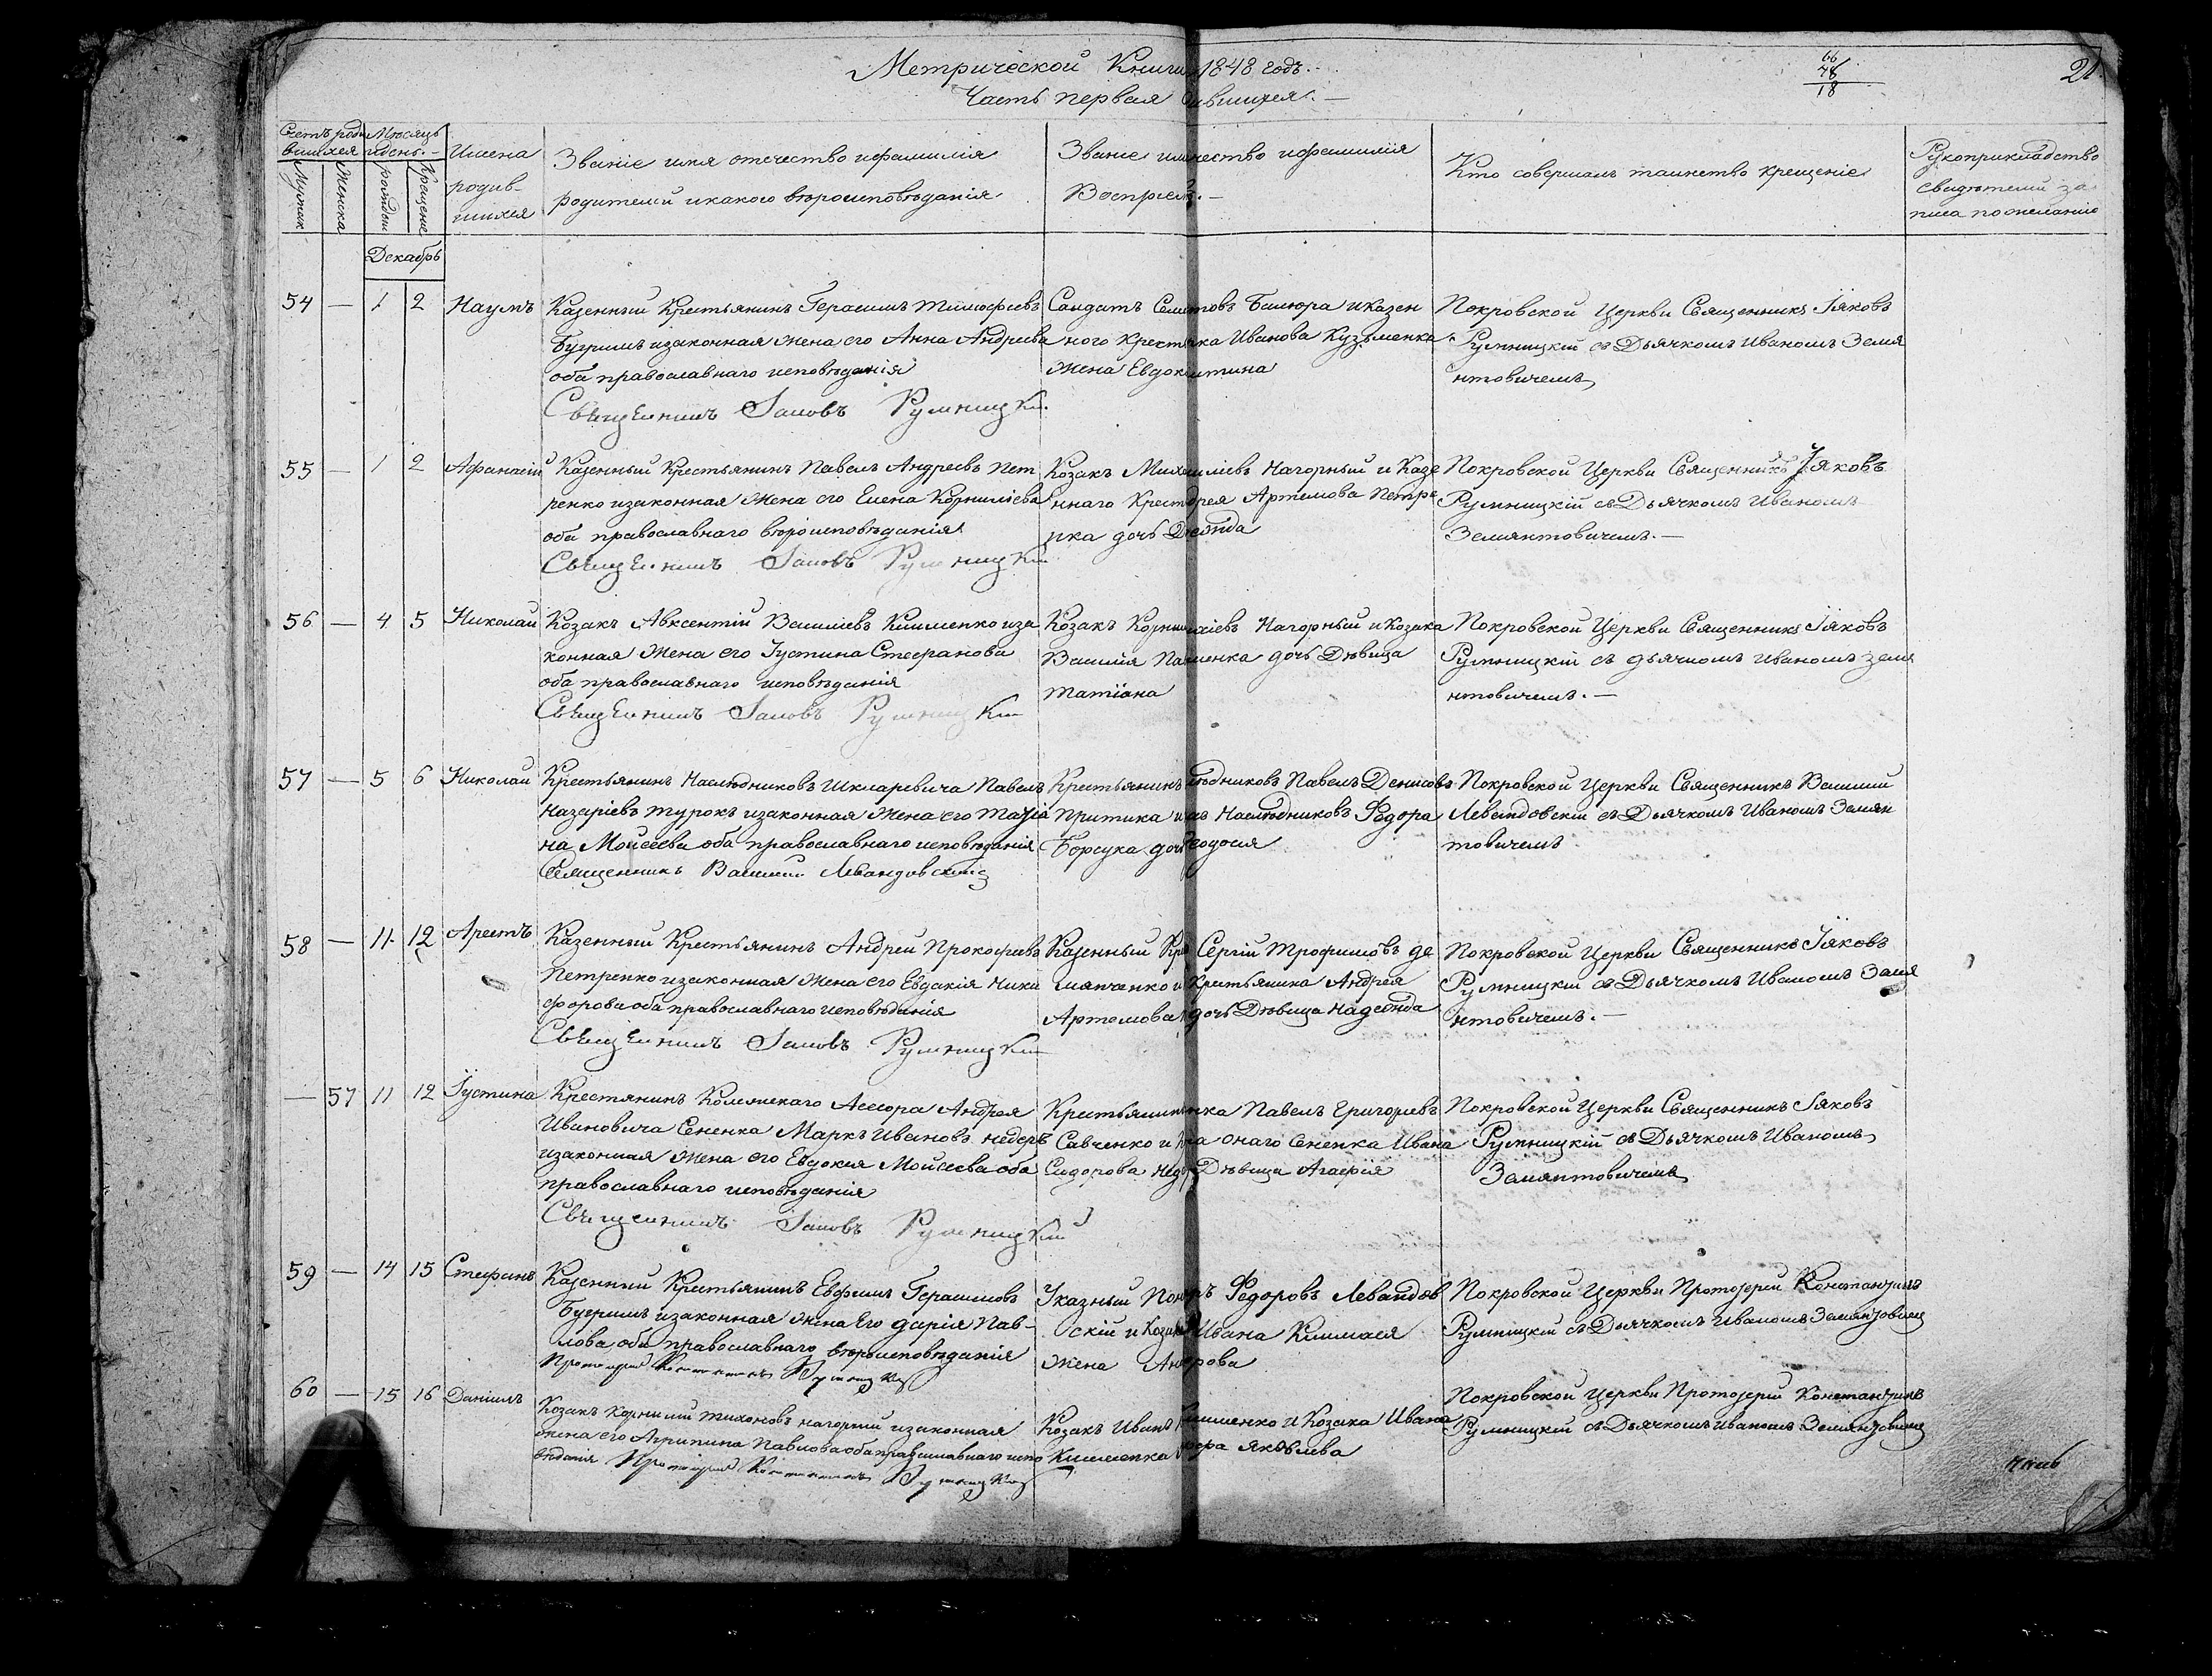 Метрической Книги 1848 годъ.
Часть первая
66
78
18
21.
Счетъ роди Мѣсяцъ
вшихся идень.
Мужик
Женска
рожден
Крещение
Имена
родив-
шихся
Званіе имя отечество ифамилія
родителей икакого вѣроисповѣданія.
Званіе ифамилія
Воспріем.
Кто совершалъ таинство крещеніе
Рукоприкладство
свидѣтелей за
писа пожеланію
Декабрь
54 — 1 2 Наумъ
Казенный Крестьянинъ Герасимъ Тимофѣевъ
Бугримъ изаконная жена его Анна Андреева
оба православнаго исповѣданія
Священникъ Іаковъ Румницкій
Салдатъ Билюра иказен
ного Иванова Кузьменка
жена
Покровской Церкви Священникъ Іяковъ
Румницкій съ Дьячкомъ Иваномъ Земя
нтовичемъ
55 — 1 2 Афанасій
Казенный Крестьянинъ Павелъ Андреевъ Пет
ренко изаконная жена его Елена Корниліева
оба православнаго вѣроисповѣданія
Священникъ Іаковъ Румницкій
Козакъ Нагорный и Казе
ннаго Артемова Петре
нка дочь
Покровской Церкви Священникъ Іяковъ
Румницкій съ Дьячкомъ Иваномъ
Земянтовичемъ.—
56 — 4 5 Николай
Козакъ Авксентій Василіевъ Клименко иза
конная жена его Іустина Стефанова
оба православнаго исповѣданія
Священникъ Іаковъ Румницкій
Козакъ Нагорный и козака
Василія дочь Дѣвица
Татіана
Покровской Церкви Священникъ Іяковъ
Румницкій съ дьячкомъ Иваномъ Земя
нтовичемъ.—
57 — 5 6 Николай
Крестьянинъ Наслѣдниковъ Шкляревича Павелъ
Назаріевъ Турокъ изаконная жена его Татіа
на Моисеева оба православнаго исповѣданія
Священникъ Василий Левандовскій
Крестьянинъ Павелъ Денисовъ
Притика Наслѣдниковъ Федора
Борсука
Покровской Церкви Священникъ Василий
Левандовскій съ Дьячкомъ Иваномъ Земян
товичемъ
58 — 11 12 Арестъ
Казенный Крестьянинъ Андрей Прокофіевъ
Петренко изаконная жена его Евдакія Ники
форова оба православнаго исповѣданія
Священникъ Іаковъ Румницкій
Казенный Сергій Трофимовъ де
мянченко Андрея
Артомова дочь Дѣвица Надежда
Покровской Церкви Священникъ Іяковъ
Румницкій съ Дьячкомъ Иваномъ Земя
нтовичемъ.—
— 57 11 12 Іустина
Крестянинъ Асесора Андрея
Ивановича Сененка Маркъ Ивановъ
изаконная жена его Евдокея Моисеева оба
православнаго исповѣданія
Священникъ Іаковъ Румницкій
Павелъ Григорьевъ
Савченко и онаго Сененка Ивана
Сидорова Дѣвица Агафія
Покровской Церкви Священникъ Іяковъ
Румницкій съ Дьячкомъ Иваномъ
Земянтовичемъ
59 — 14 15 Стефанъ
Казенный Крестьянинъ Евфимъ Герасимовъ
Бугримъ изаконная жена Его дарія Пав-
лова оба православнаго вѣроисповѣданія
Протоіерей Константинъ Румницкій
Указный Федоровъ Левандов
скій и Ивана
жена
Покровской Церкви Протоіерей Константинъ
Румницкій съ Дьячкомъ Иваномъ Земянтовичемъ
60 — 15 16 Даніилъ
Козакъ Корнилий Тихоновъ нагорній изаконная
жена его Агрипина Павлова оба православнаго испо
вѣданія Протоіерей Константинъ Румницкій
Козакъ Иванъ Клименко и Козака Ивана
Клименка Яковлева
Покровской Церкви Протоіерей Константинъ
Румницкій съ Дьячкомъ Иваномъ Земянтовичемъ